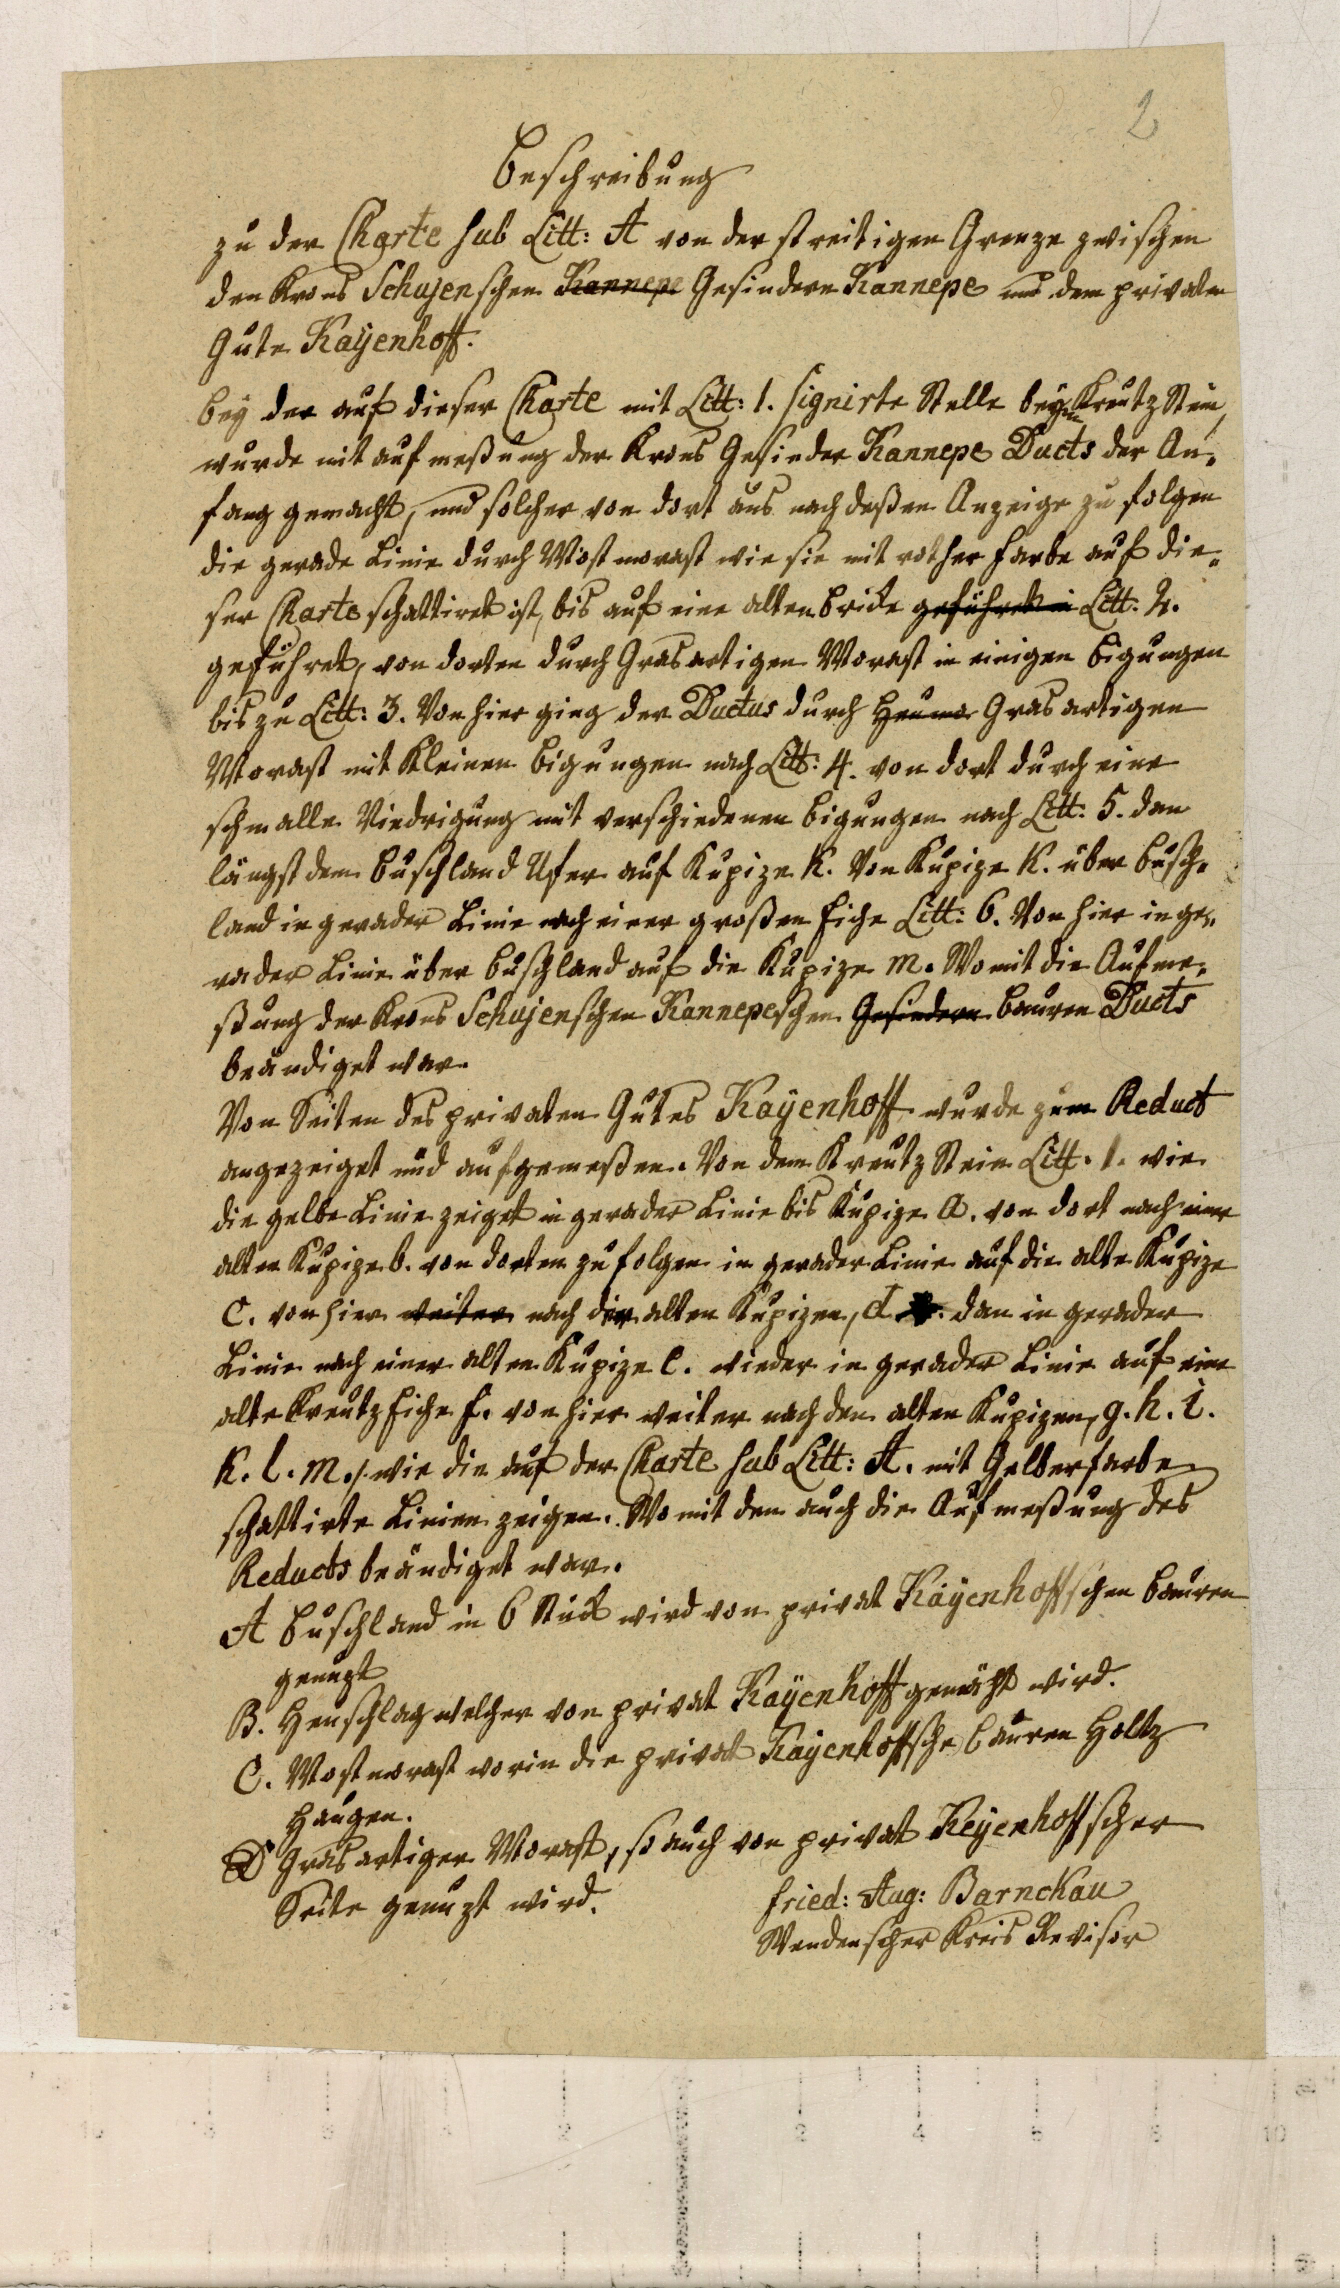 2
Beschreibung
zu der Charte sub Litt: A von der streitigen Grenze zwischen
den Krons Schujenschen Kannepe Gesindern Kannepe und dem privaten
Gute Kaÿenhoff.
beÿ der auf dieser Charte mit Litt: 1. signirte Stelle beym Kreutz Stein,
wurde mit aufmeßung der Krons Gesinder Kannepe Ducts der An-
fang gemacht, und solcher von dort aus nach deßen Anzeige zu folgen
die gerade Linie durch Mostmorast wie sie mit rother farbe auf die-
ser Charte schattiret ist, bis auf eine alten Brücke geführet in Litt. 2.
geführet, von dorten durch Grasartigen Morast in einigen Bigungen
bis zu Litt: 3. Von hier ging der Ductus durch Heumo Grasartigen
Morast mit Kleinen Bigungen nach Litt: 4. von dort durch eine
schmalle Niedrigung mit verschiedenen Bigungen nach Litt: 5. dan
längst dem Buschland Ufer auf Kupize K. Von Kupize K. über Busch-
land in gerader Linie nach einer großen Eiche Litt: 6. Von hier in ge-
rader Linie über Buschland auf die Kupize m. Womit die Aufme-
ßung der Krons Schujenschen Kannepeschen Gesindern Bauren Ducts
beändiget war.
Von Seiten des privaten Gutes Kaÿenhoff wurde zum Reduct
angezeiget und aufgemeßen. Von dem Kreutz Stein Litt. 1. wie
die gelbe Linie zeiget in gerader Linie bis Kupize a. von dort nach einer
alten Kupize b. von dorten zu folgen in gerader Linie auf die alte Kupize
C. von hier weiter nach der alten Kupizen, d. dan in gerader
Linie nach einer alten Kupize e. wieder in gerader Linie auf eine
alte Kreutz Eiche f. von hier weiter nach den alten Kupizen, g. h. i.
K. l. m. wie die auf der Charte sub Litt: A. mit Gelber farbe
schattirte Linien zeigen. Womit den auch die Aufmeßung des
Reducts beändiget war.
A Buschland in 6 Stück wird von privat Kaÿenhoffschen Bauren
genuzt
B. Heuschlag welcher von privat Kaÿenhoff gemäht wird.
C. Mostmorast worin die privat Kaÿenhoffsche Bauren Holtz
Haugen.
D Grasartiger Morast, so auch von privat Keÿenhoffscher
Seite genuzt wird.
Fried: Aug: Barnckau
Wendenscher Kreis Revisor